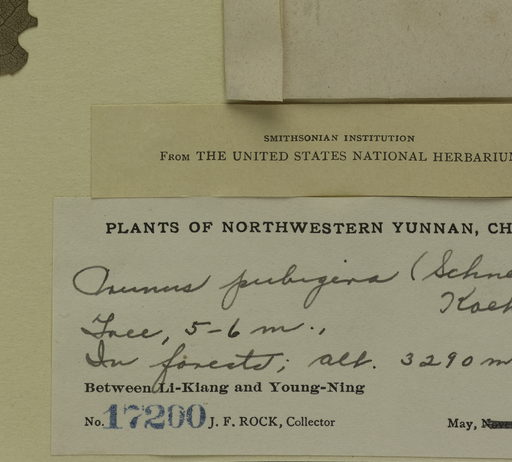 SMITHSONIAN INSTITUTION
From THE UNITED STATES NATIONAL HERBARIUM
PLANTS OF NORTHWESTERN YUNNAN, CH
Prunus pubigera (Schne
Koeh
Tree, 5-6 m.,
In forests; alt. 3290 m
Between Li-Kiang and Young-Ning
No. 17200 J. F. ROCK, Collector May, Nove